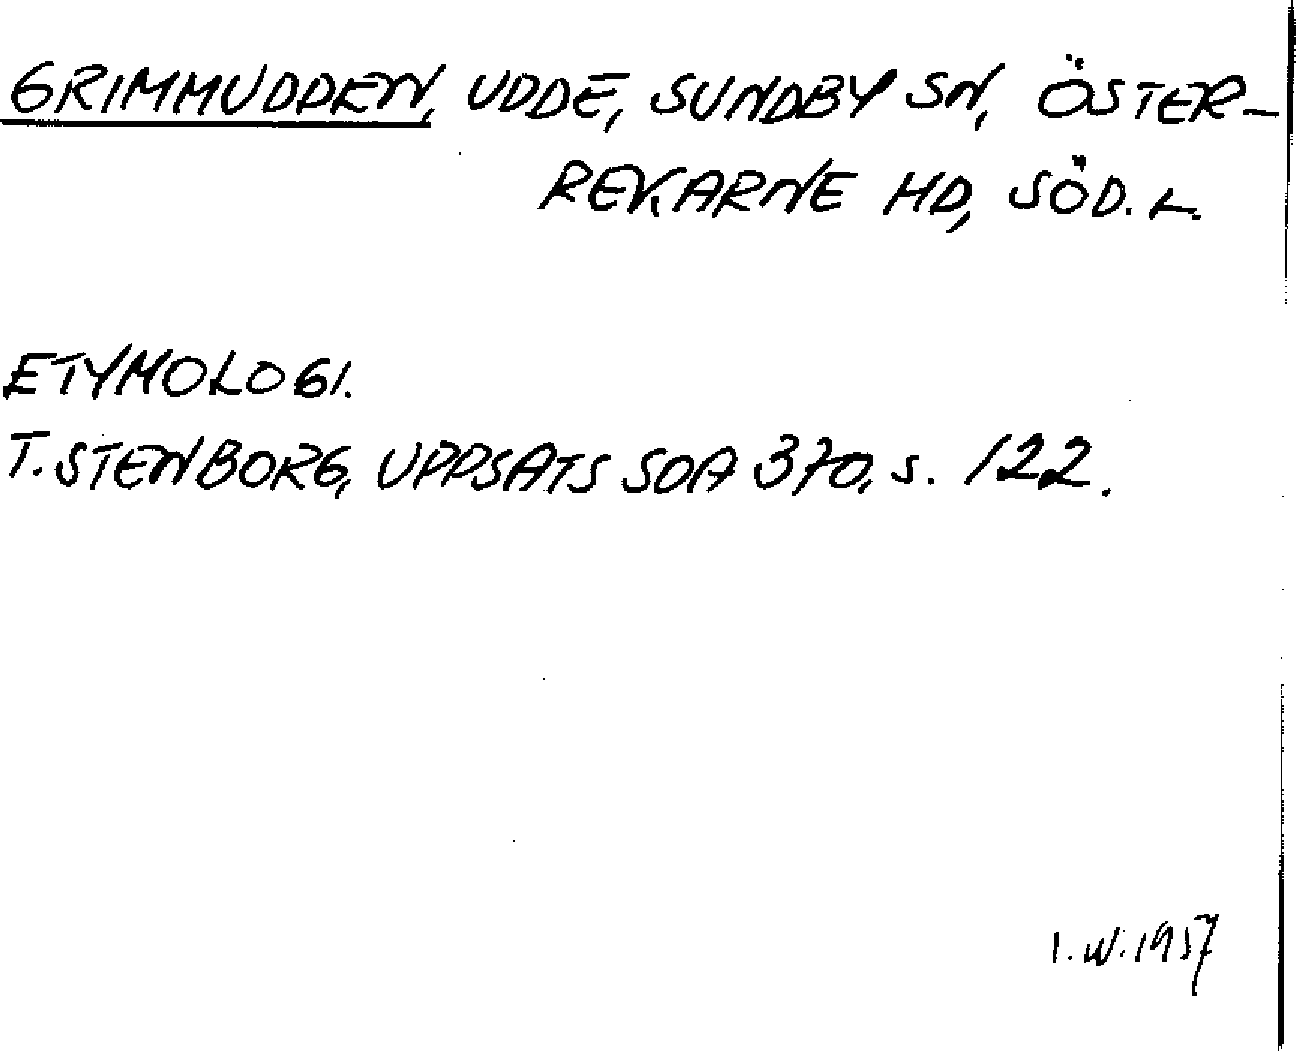 GRIMMUDDEN, UDDE, SUNDBY SN, ÖSTER-
REKARNE HD, SÖD. L.
ETYMOLOGI.
T. STENBORG, UPPSATS SOA 370, S. 122.
I. W. 1957